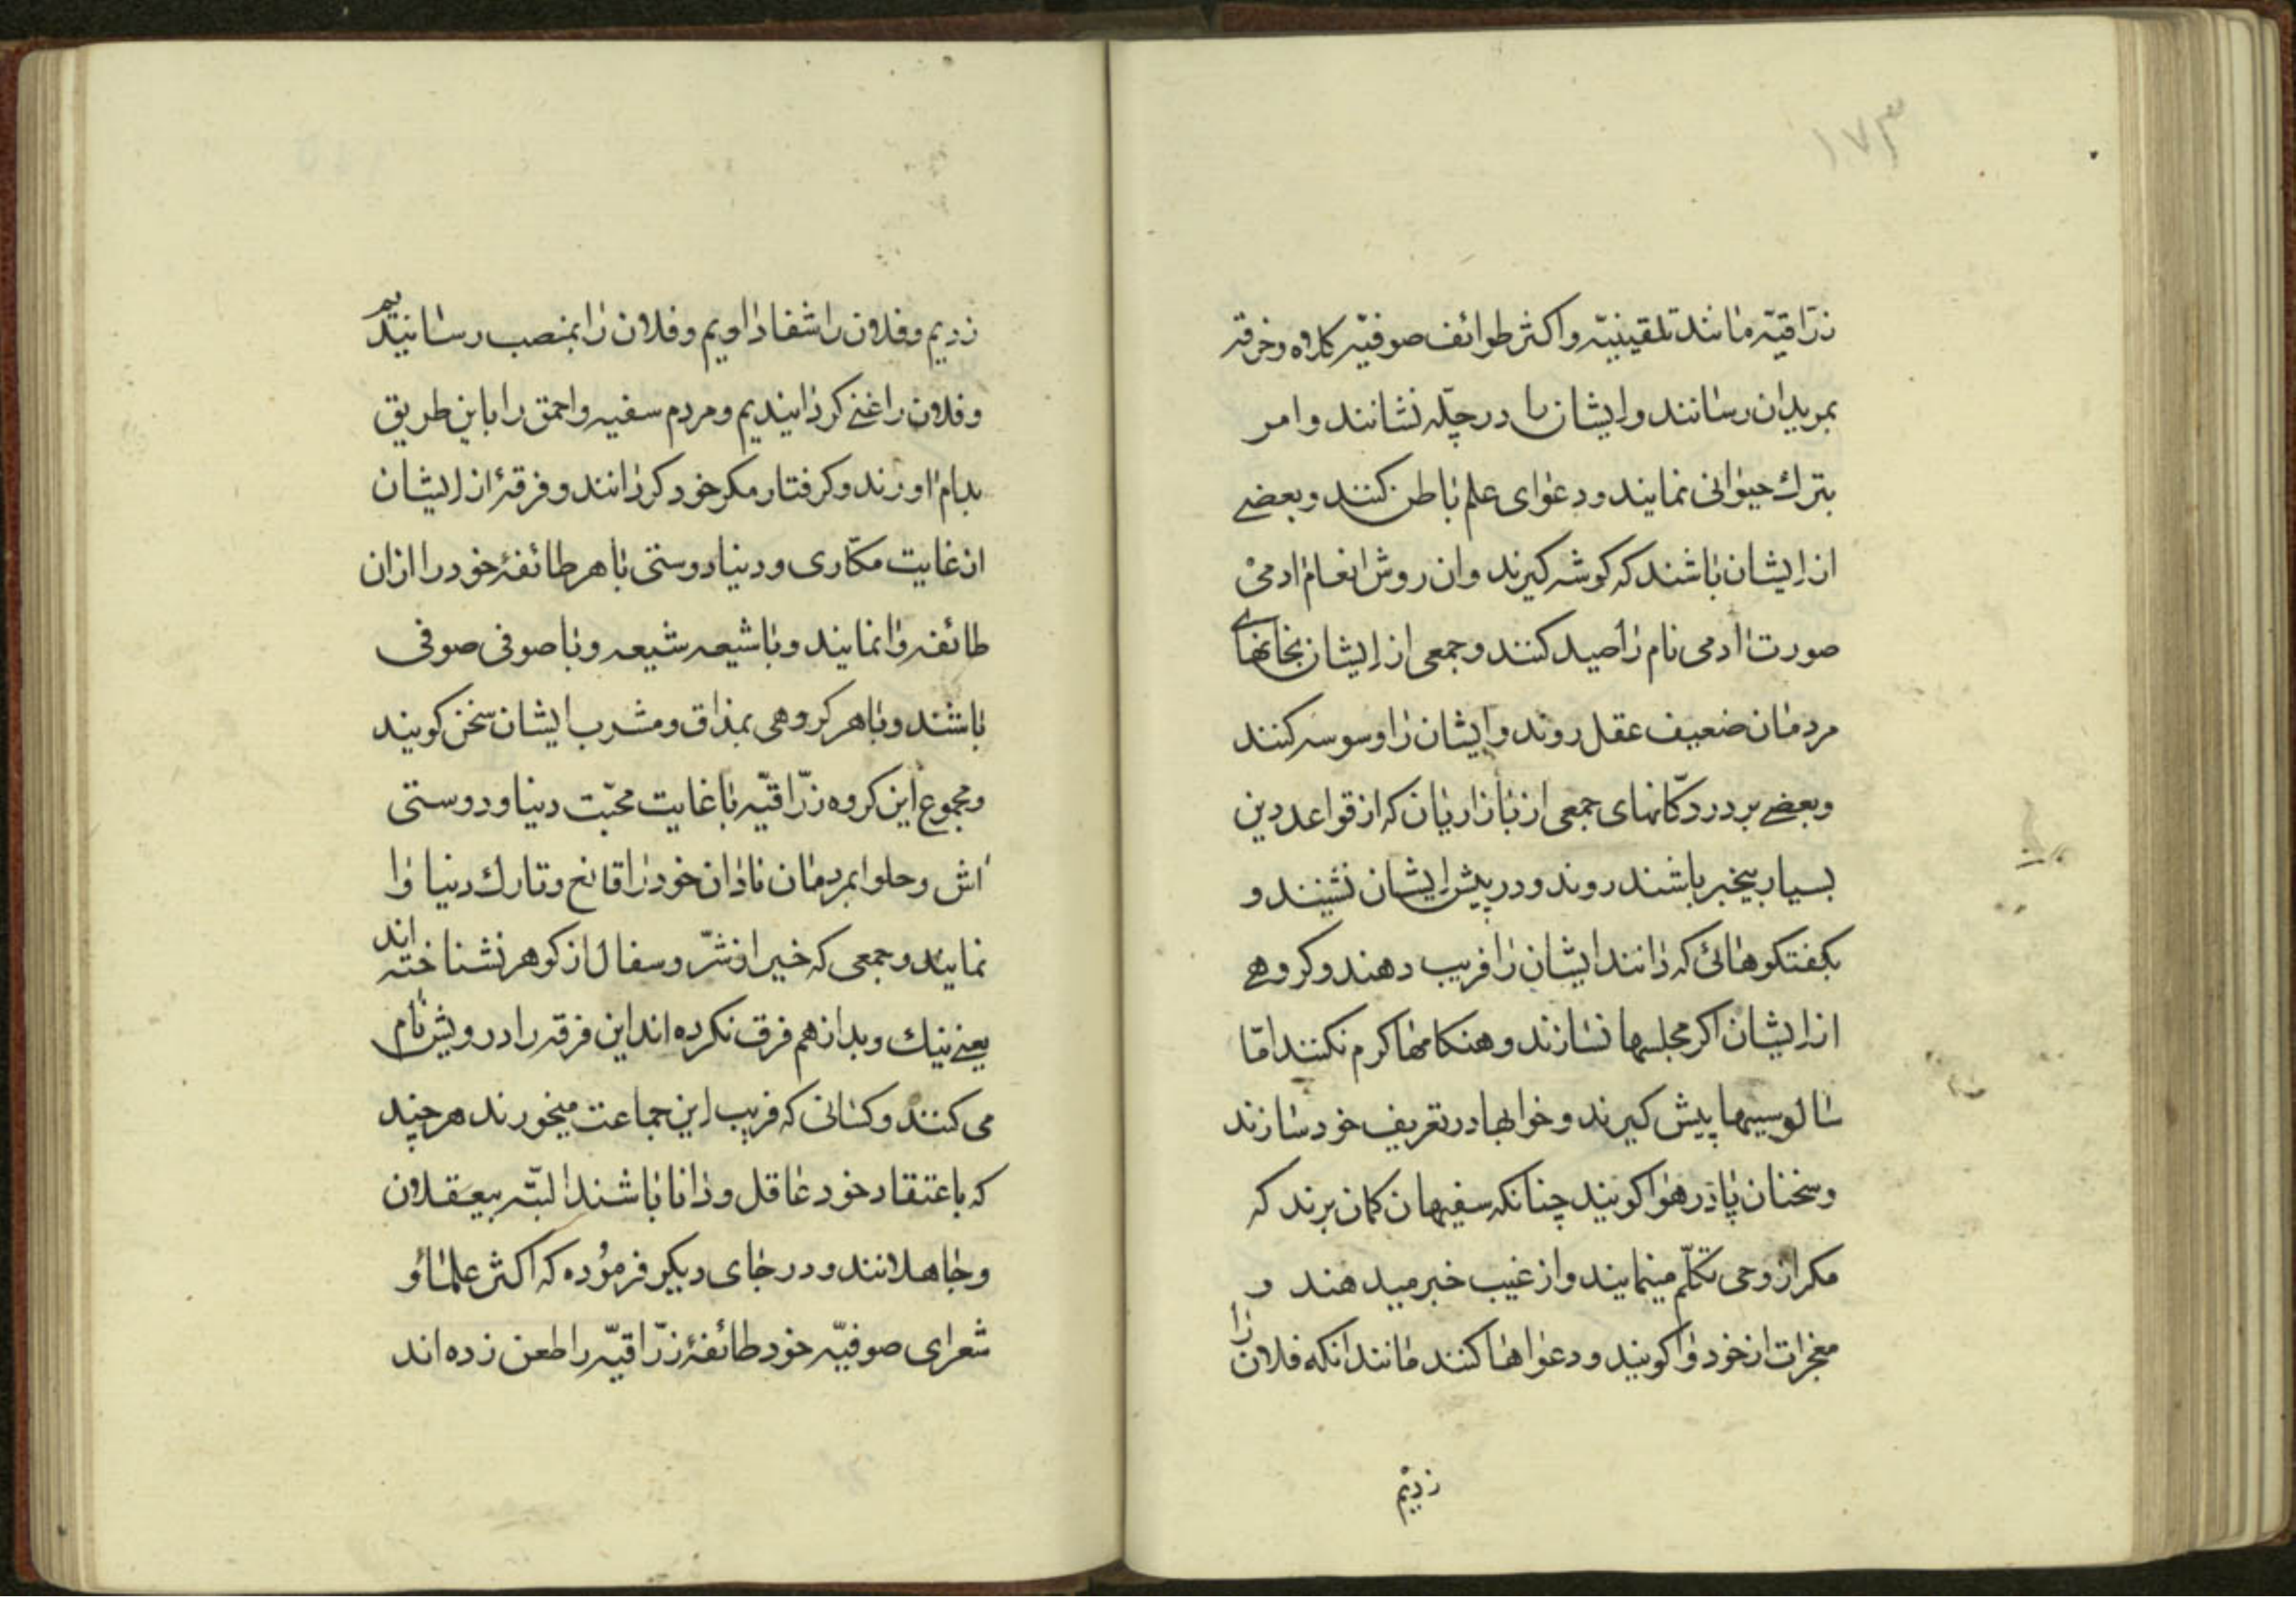 ۱۷۳
زرّاقیّه مانند تلقینیّه و اکثر طوائف صوفیّه کلاه و خرقه
بمریدان رسانند و ایشان را در چلّه نشانند و امر
بترك حیوانی نمایند و دعوای علم باطن کنند و بعضی
از ایشان باشند که کوشه کیرند و ان روش انعام ادمی
صورت ادمی نام را صید کنند و جمعی از ایشان بخانهای
مردمان ضعیف عقل روند و ایشان را وسوسه کنند
و بعضی بر در دکّانهای جمعی از بازاریان که از قواعد دین
بسیار بیخبر باشند روند و در پیش ایشان نشینند و
بکفتکوهائی که دانند ایشان را فریب دهند و کروهی
از ایشان اکر مجلسها نسازند و هنکامها کرم نکنند امّا
سالوسیها پیش کیرند و خوابها در تعریف خود سازند
و سخنان پا در هوا کویند چنانکه سفیهان کمان برند که
مکر از وحی تکلّم مینمایند و از غیب خبر میدهند و
معجزات از خود وا کویند و دعواها کنند مانند انکه فلان را
زدیم
زدیم و فلان را شفا دادیم و فلان را بمنصب رسانیدیم
و فلان را غنی کردانیدیم و مردم سفیه و احمق را باین طریق
بدام اورند و کرفتار مکر خود کردانند و فرقهٔ از ایشان
از غایت مکّاری و دنیا دوستی با هر طائفهٔ خود را از ان
طائفه وا نمایند و با شیعه شیعه و با صوفی صوفی
باشند و با هر کروهی بمذاق و مشرب ایشان سخن کویند
و مجموع این کروه زرّاقیّه با غایت محبّت دنیا و دوستی
اش و حلوا بمردمان نادان خود را قانع و تارك دنیا وا
نمایند و جمعی که خیر از شرّ و سفال از کوهر نشناخته اند
یعنی نیك و بد از هم فرق نکرده اند این فرقه را درویش نام
می کنند و کسانی که فریب این جماعت میخورند هر چند
که باعتقاد خود عاقل و دانا باشند البتّه بیعقلان
و جاهلانند و در جای دیکر فرموده که اکثر علما و
شعرای صوفیّه خود طائفهٔ زرّاقیّه را طعن زده اند